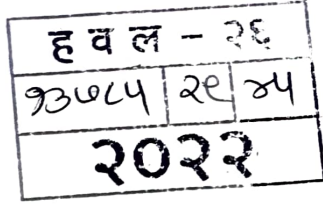 ह व ल - २६
१३७८५ २९ ४५
२०२२